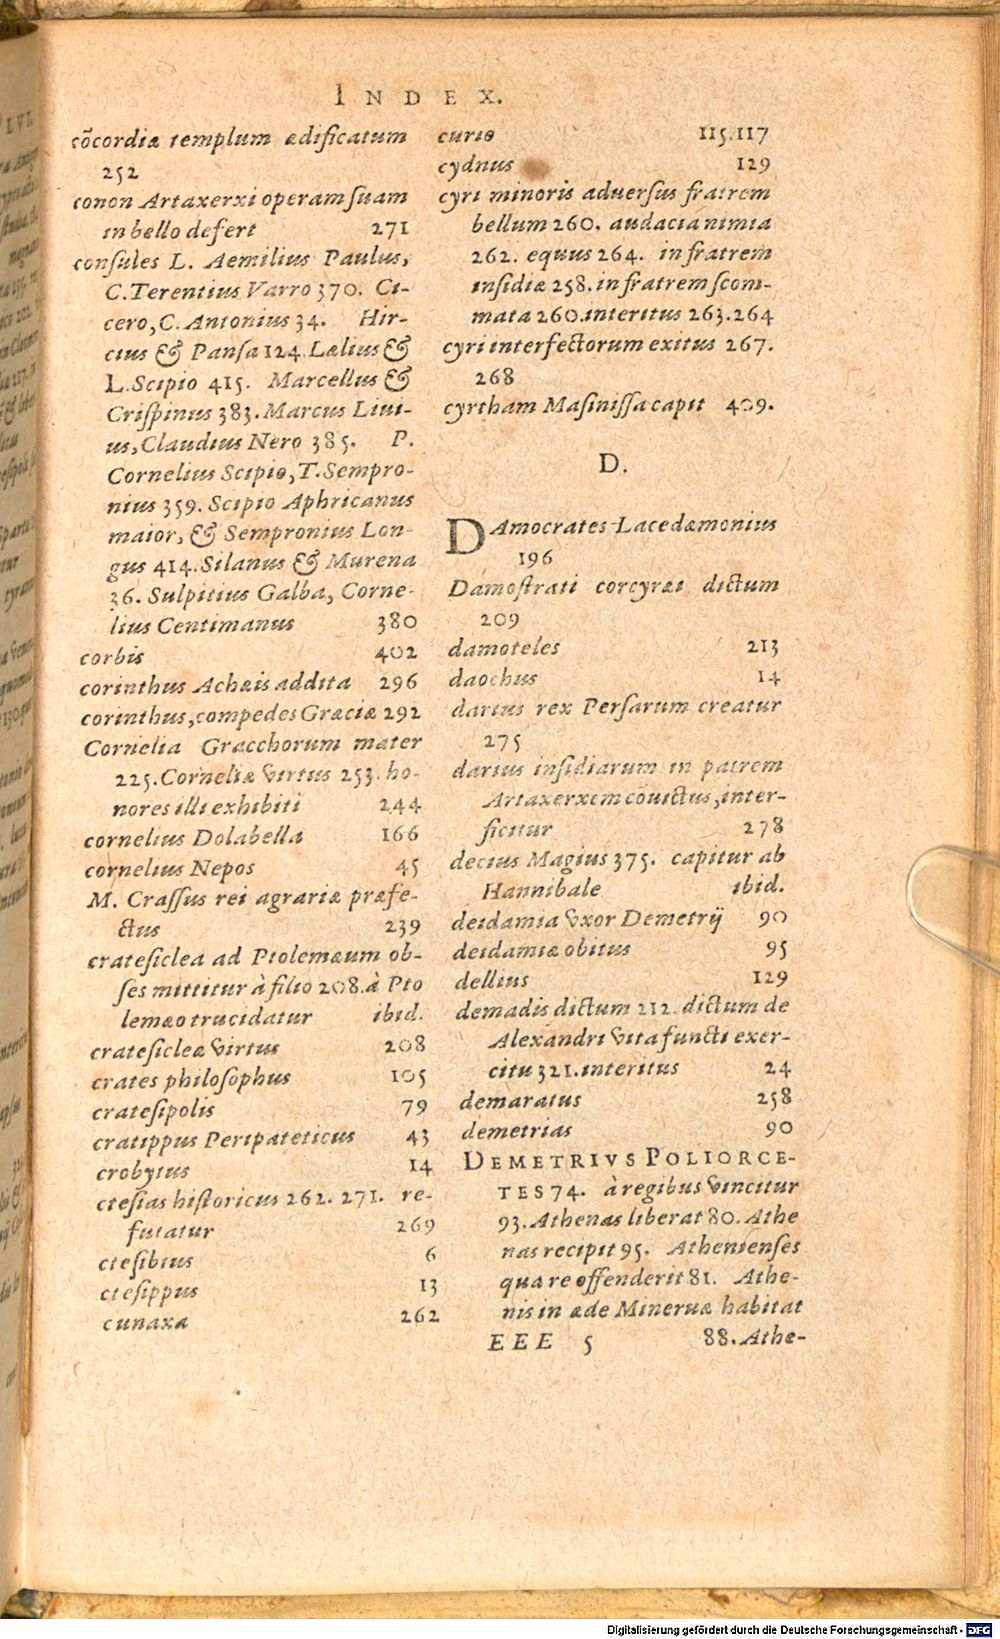 INDEX.
cõcordiæ templum ædificatum
252
conon Artaxerxi operam ſuam
in bello defert 271
conſules L. Aemilius Paulus,
C. Terentius Varro 370. Ci-
cero, C. Antonius 34. Hir-
cius & Panſa 124. Lælius &
L. Scipio 415. Marcellus &
Criſpinus 383. Marcus Liui-
us, Claudius Nero 385. P.
Cornelius Scipio, T. Sempro-
nius 359. Scipio Aphricanus
maior, & Sempronius Lon-
gus 414. Silanus & Murena
36. Sulpitius Galba, Corne-
lius Centimanus 380
corbis 402
corinthus Achæis addita 296
corinthus, compedes Græciæ 292
Cornelia Gracchorum mater
225. Corneliæ virtus 253. ho-
nores illi exhibiti 244
cornelius Dolabella 166
cornelius Nepos 45
M. Craſſus rei agrariæ præfe-
ctus 239
crateſiclea ad Ptolemæum ob-
ſes mittitur à filio 208. à Pto
lemæo trucidatur ibid.
crateſicleæ virtus 208
crates philoſophus 105
crateſipolis 79
cratippus Peripateticus 43
crobytus 14
cteſias hiſtoricus 262. 271. re-
futatur 269
cteſibius 6
cteſippus 13
cunaxa 262
curio 115.117
cydnus 129
cyri minoris aduerſus fratrem
bellum 260. audacia nimia
262. equus 264. in fratrem
inſidiæ 258. in fratrem ſcom-
mata 260. interitus 263.264
cyri interfectorum exitus 267.
268
cyrtham Maſiniſſa capit 409.
D.
DAmocrates Lacedæmonius
196
Damoſtrati corcyræi dictum
209
damoteles 213
daochus 14
darius rex Perſarum creatur
275
darius inſidiarum in patrem
Artaxerxem cõuictus, inter-
ficitur 278
decius Magius 375. capitur ab
Hannibale ibid.
deidamia vxor Demetrij 90
deidamiæ obitus 95
dellius 129
demadis dictum 212. dictum de
Alexandri vita functi exer-
citu 321. interitus 24
demaratus 258
demetrias 90
DEMETRIVS POLIORCE-
TES 74. à regibus vincitur
93. Athenas liberat 80. Athe
nas recipit 95. Athenienſes
quare offenderit 81. Athe-
nis in æde Mineruæ habitat
EEE 5 88. Athe-
Digitalisierung gefördert durch die Deutsche Forschungsgemeinschaft - DFG